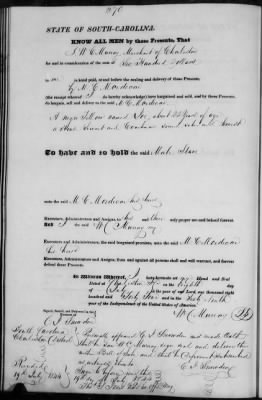 STATE OF SOUTH-CAROLINA.
KNOW ALL MEN by these Presents, That
I Wm C Murray Merchant of Charleston
for and in consideration of the sum of Six Hundred Dollars
to me in hand paid, at and before the sealing and delivery of these Presents,
by M C Mordecai
(the receipt whereof I do hereby acknowledge) have bargained and sold, and by these Presents,
do bargain, sell and deliver to the said M C Mordecai
A negro fellow named Joe, about 22 years of age
a House Servant and Coachman sound
To have and to hold the said Male Slave
unto the said M C Mordecai his heirs
Executors, Administrators and Assigns, to his and their only proper use and behoof forever.
And I the said Wm C Murray my
Executors and Administrators, the said bargained premises, unto the said M C Mordecai
his heirs
Executors, Administrators and Assigns, from and against all persons shall and will warrant, and forever
defend these Presents.
In Witness Whereof, I have hereunto set my Hand and Seal
Dated at Charleston on the Eighth day
of in the year of our Lord one thousand eight
hundred and Forty Four and in the Sixty
year of the Independence of the United States of America.
Signed, Sealed, and Delivered
in the Presence of
Wm C Murray
South Carolina
Charleston District
Personally appeared and made Oath
that he saw Wm C Murray sign seal and deliver the
within Bill of Sale and that he
Recorded
19th July 1844